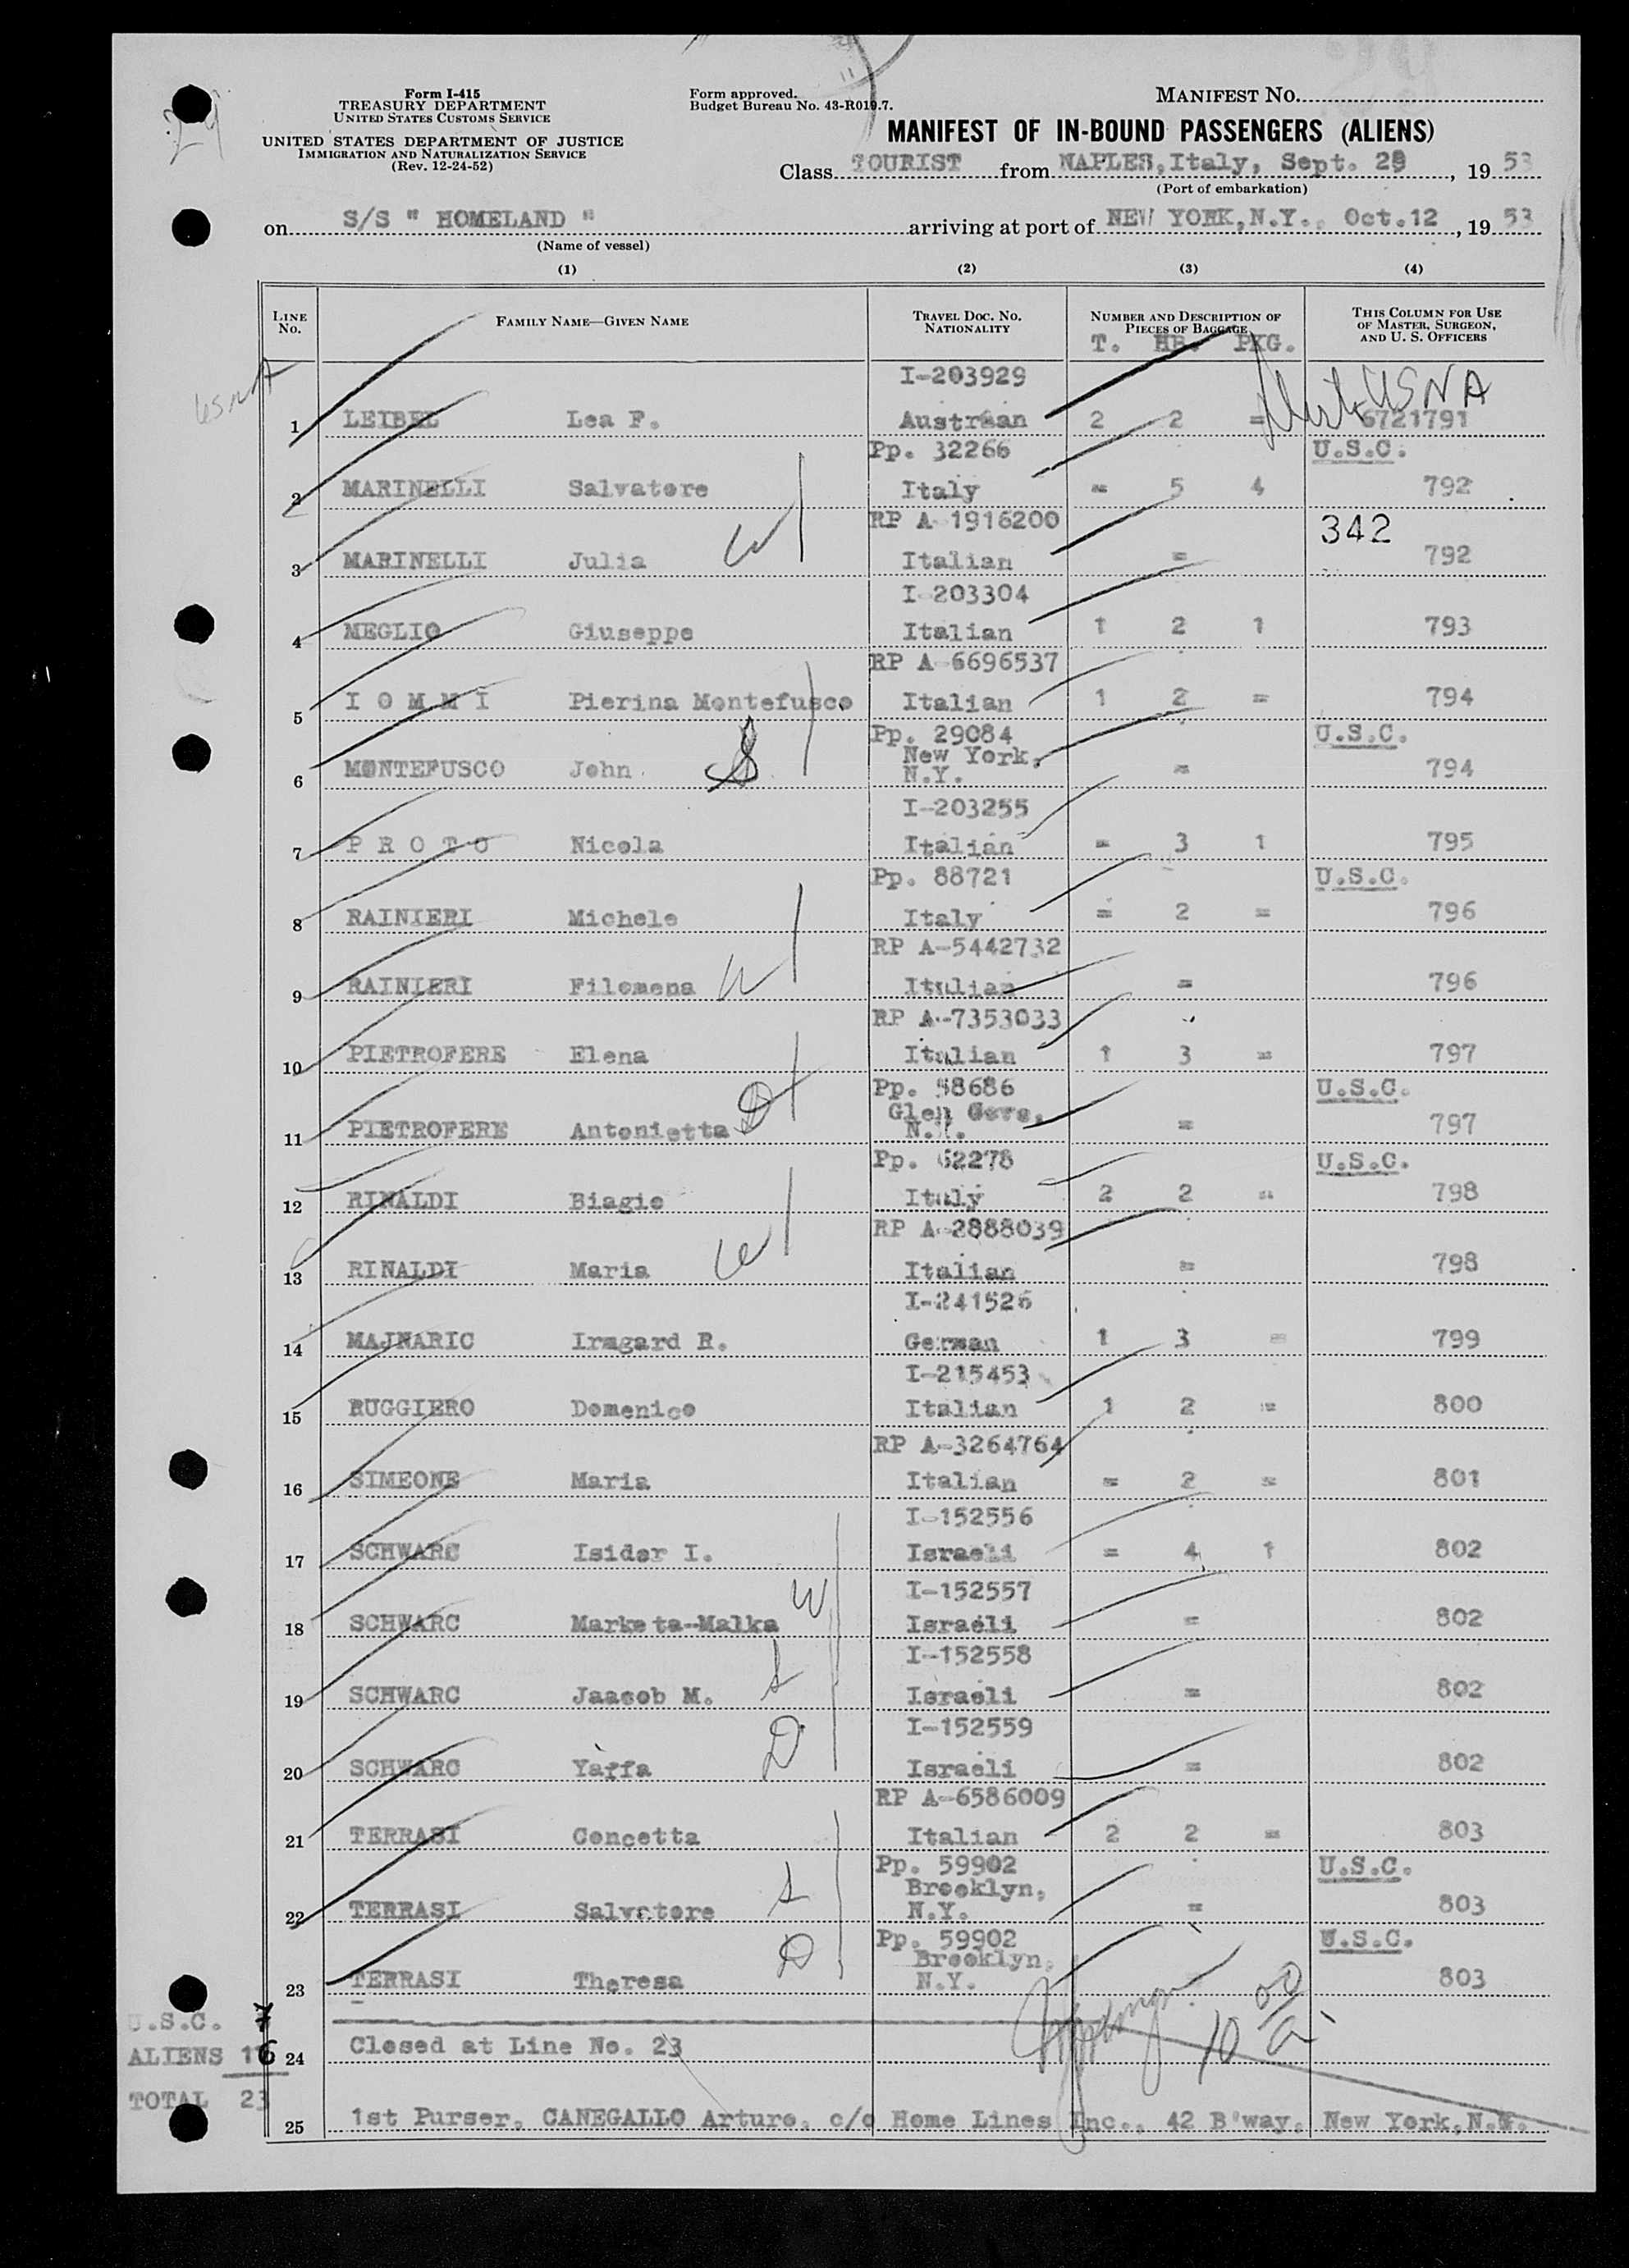 29
Form I-415
TREASURY DEPARTMENT
UNITED STATES CUSTOMS SERVICE
UNITED STATES DEPARTMENT OF JUSTICE
IMMIGRATION AND NATURALIZATION SERVICE
(Rev. 12-24-52)
Form approved.
Budget Bureau No. 43-R019.7.
MANIFEST NO.
MANIFEST OF IN-BOUND PASSENGERS (ALIENS)
Class TOURIST from NAPLES, Italy, Sept. 28, 1953
(Port of embarkation)
on S/S " HOMELAND " arriving at port of NEW YORK, N.Y., Oct.12, 1953
(Name of vessel)
(1) (2) (3) (4)
LINE No. FAMILY NAME—GIVEN NAME TRAVEL DOC. NO. NATIONALITY NUMBER AND DESCRIPTION OF PIECES OF BAGGAGE THIS COLUMN FOR USE OF MASTER, SURGEON, AND U. S. OFFICERS
T. HB. PKG.
I-203929 USNA
USNA 1 LEIBEL Lea F. Austrian 2 2 = 6721791
Pp. 32266 U.S.C.
2 MARINELLI Salvatore Italy = 5 4 792
RP A-1916200 342
3 MARINELLI Julia W Italian = 792
I-203304
4 MEGLIO Giuseppe Italian 1 2 1 793
RP A-6696537
5 I O M M I Pierina Montefusco Italian 1 2 = 794
Pp. 29084 U.S.C.
6 MONTEFUSCO John S New York, N.Y. = 794
I-203255
7 P R O T O Nicola Italian = 3 1 795
Pp. 88721 U.S.C.
8 RAINIERI Michele Italy = 2 = 796
RP A-5442732
9 RAINIERI Filomena W Italian = 796
RP A-7353033
10 PIETROFERE Elena Italian 1 3 = 797
Pp. 58686 U.S.C.
11 PIETROFERE Antonietta D Glen Cove, N.Y. = 797
Pp. 62278 U.S.C.
12 RINALDI Biagio Italy 2 2 = 798
RP A-2888039
13 RINALDI Maria W Italian = 798
I-241526
14 MAJNARIC Irmgard R. German 1 3 = 799
I-215453
15 RUGGIERO Domenico Italian 1 2 = 800
RP A-3264764
16 SIMEONE Maria Italian = 2 = 801
I-152556
17 SCHWARC Isider I. Israeli = 4 1 802
I-152557
18 SCHWARC Marketa-Malka W Israeli = 802
I-152558
19 SCHWARC Jaacob M. S Israeli = 802
I-152559
20 SCHWARC Yaffa D Israeli = 802
RP A-6586009
21 TERRASI Concetta Italian 2 2 = 803
Pp. 59902 U.S.C.
22 TERRASI Salvatore S Brooklyn, N.Y. = 803
Pp. 59902 U.S.C.
23 TERRASI Theresa D Brooklyn, N.Y. 803
U.S.C. 7
ALIENS 16 24 Closed at Line No. 23
TOTAL 23
25 1st Purser, CANEGALLO Arturo, c/o Home Lines Inc., 42 B'way, New York, N.Y.